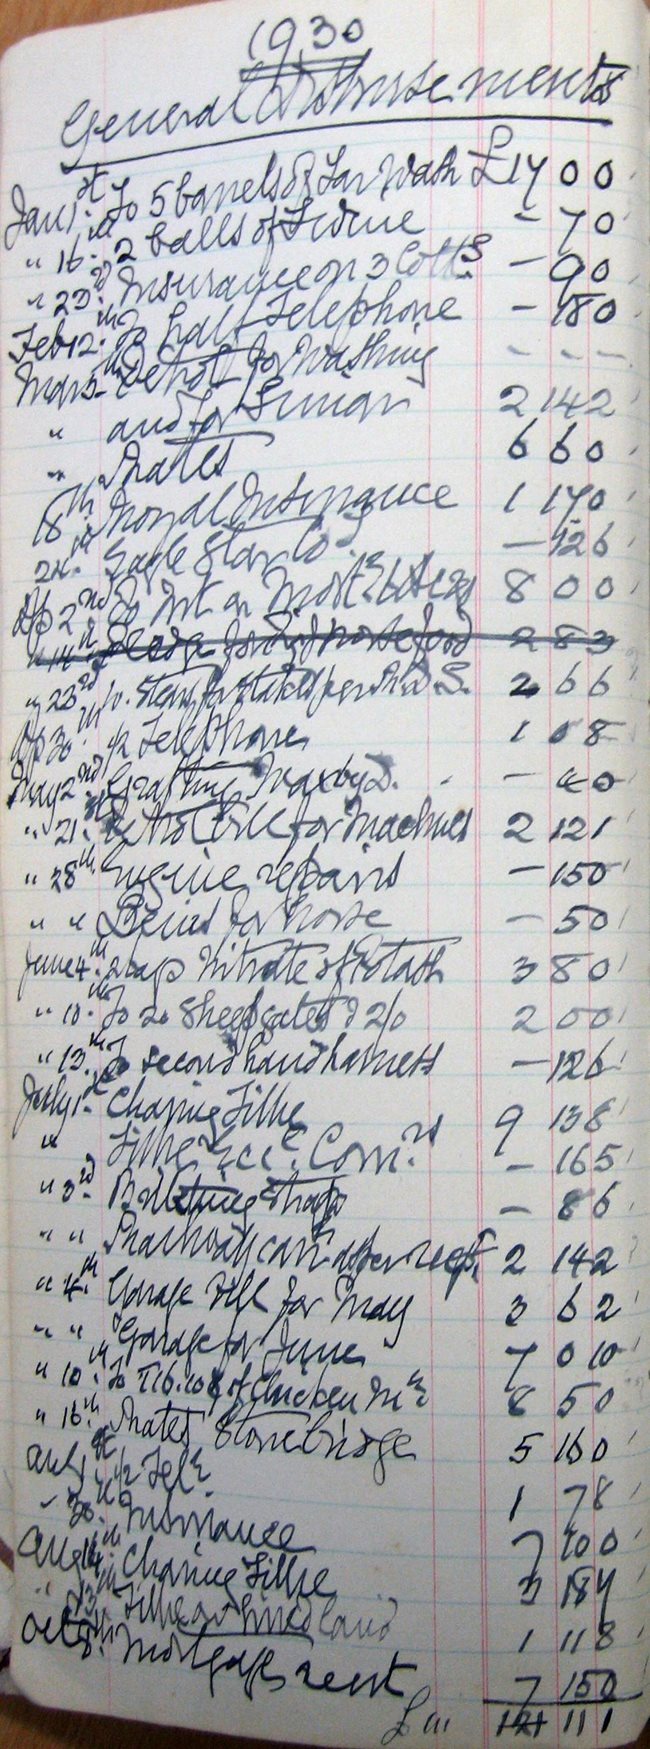 1930
General Disbursements
Jan 1st. To 5 barrels of Tar Wash £17 0 0
" 16th. 2 balls of Twine - 7 0
" 23rd. Insurance on 3 Colts - 9 0
Feb 12th. To half Telephone - 18 0
Mar 5th Petrol for Washing - - -
" and for 2 14 2
" Rates 6 6 0
18th Royal Insurance 1 17 0
24th Eagle Star Co - 12 6
Ap 2nd To Int on Mort 8 0 0
" 14th for horse food 2 8 3
" 23rd for stakes per 2 6 6
Ap 30th. 1/2 Telephone 1 0 8
May 2nd Grafting Wax by D. - 4 0
" 21st. Petrol Bill for Machines 2 12 1
" 28th. Engine repairs - 15 0
" " for horse - 5 0
June 4th. 2 bags Nitrate of Potash 3 8 0
" 10th. To 20 Sheep gates @ 2/0 2 0 0
" 13th. To second hand harness - 12 6
July 1st. Charing Tithe 9 13 8
" Tithe Eccl. Comrs - 16 5
" 3rd. traps - 8 6
" " 2 14 2
" 4th. Garage Bill for May 3 6 2
" " Garage for June 7 0 10
" 10th. To of Chicken 8 5 0
" 16th. Rates Stonebridge 5 16 0
Aug 1st. 1/2 Tele 1 7 8
" 30th Insurance 7 10 0
Aug 14th. Charing Tithe 3 18 4
" 13th. Tithe on land 1 11 8
Oct 8th. Mortgage rent 7 15 0
£ 111 121 11 1